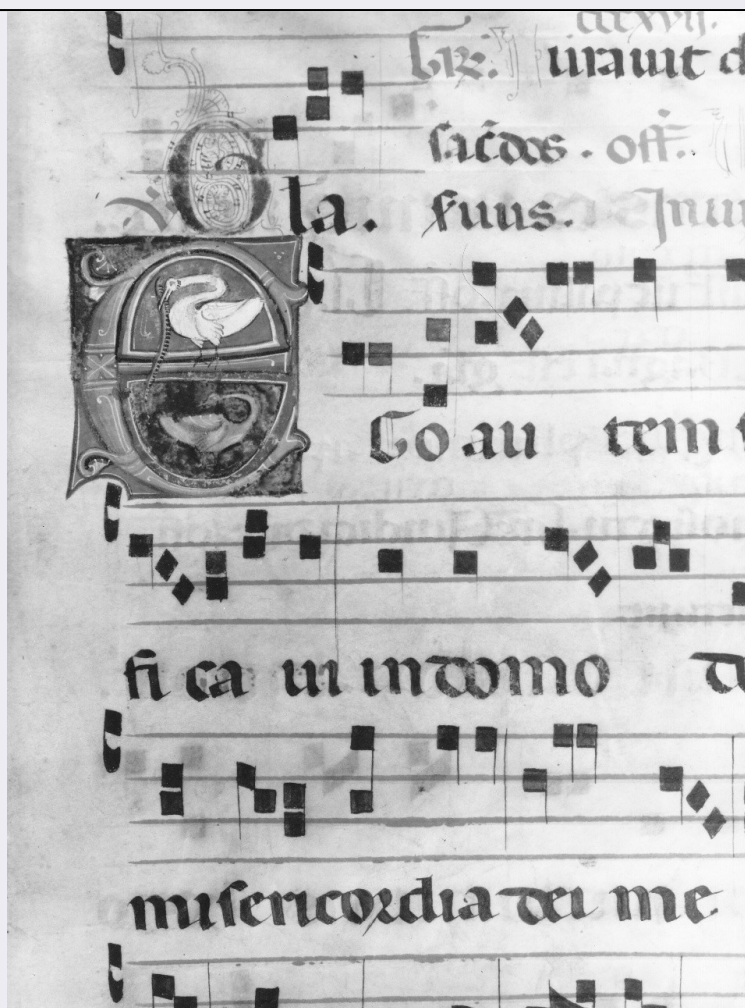 ccxvij.
Gr. Iurauit d
sac̃dos. off̃.
la. suus. Inun
EGo au tem
fi ca ui indomo de
misericordia dei me